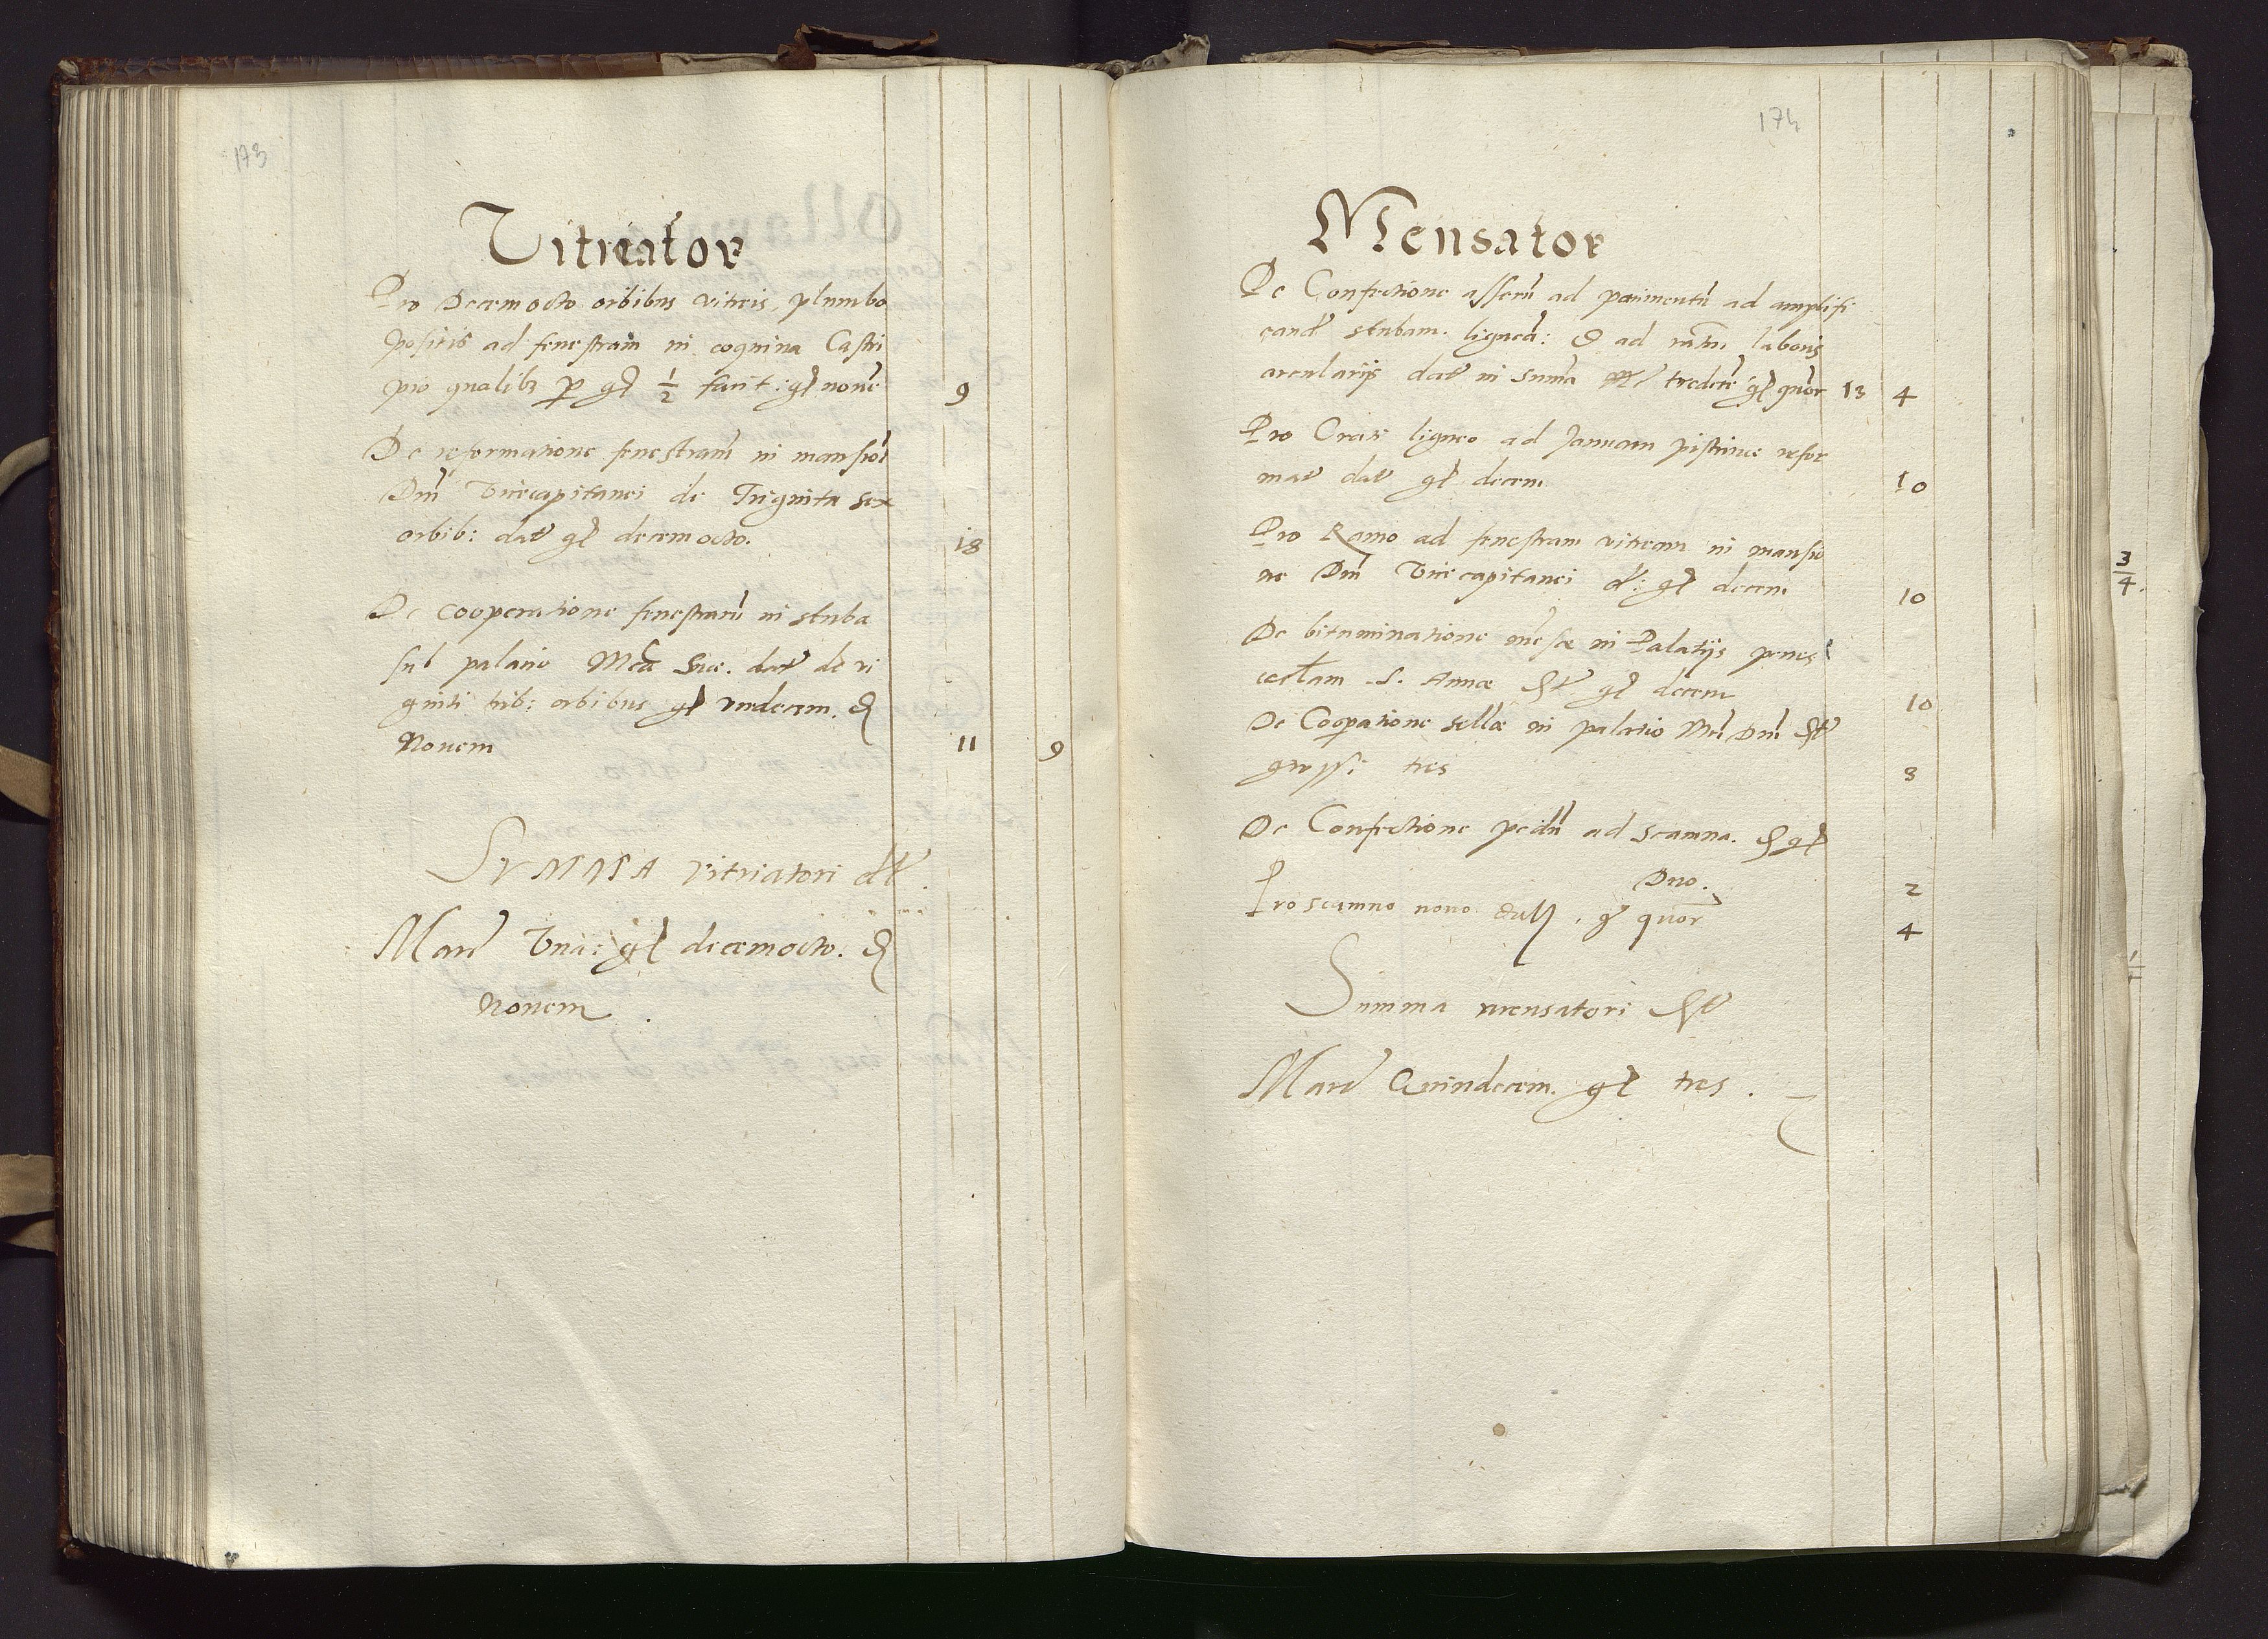 173
Vitriator
Pro Decemocto orbibus vitreis, plumbo
positis ad fenestram in coquina Castri
pro qualibȝ per gr ½ facit: gr novē 9
De reformatione fenestrarū in mansioē
Dnī Vicecapitanei de Triginta sex
orbib: datᵉ gr decemocto. 18
De cooperatione fenestrarū in stuba
sub palatio Mtis Suæ. datᵉ de vi
ginti trib: orbibus gr vndecem. d
Novem 11 9
SVMMA vitriatori dtᵉ.
Marc Vna: gr decemocto. d
Novem.
174
Mensator
De Confectione asserū ad pavimentū ad amplifi
candᵉ stubam. ligneā: & ad rātm laboris
arcularijs datᵉ in summa tredecē gr quor 13 4
Pro Crati ligneo ad Januam pistrinæ refor
matᵉ datᵉ gr decem 10
Pro Ramo ad fenestram vitream in mansio
ne Dnī Vicecapitanei d: gr decem 10
De bituminatione mēsæ in Palatijs penes
eccłam S. Annæ dtᵉ gr decem 10
De Cooperatione sellæ in palatio Mtis Dnī dtᵉ
grossi tres 3
De Confectione pedū ad scamna. d gr
Duo. 2
Pro scamno novo gr quor 4
Summa mensatori dtᵉ
Marc Quindecem. gr tres.
3/4.